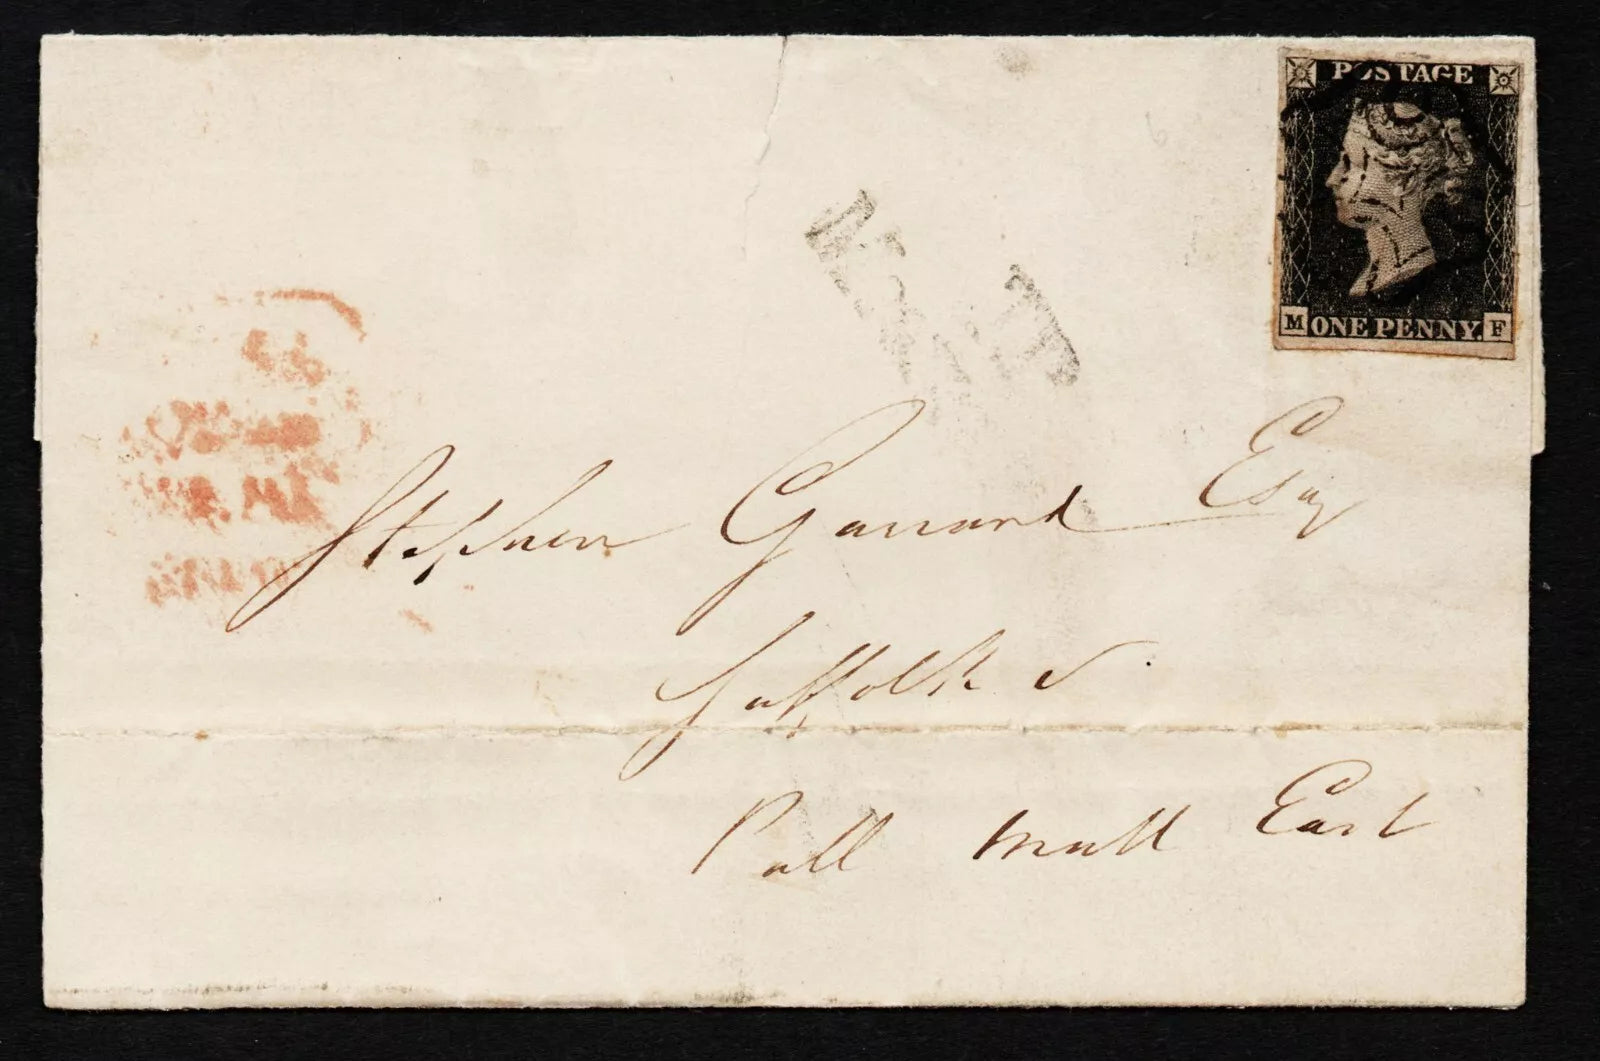 POSTAGE
M ONE PENNY. F
Stephen Garrard Esq
Suffolk S.
Pall Mall East